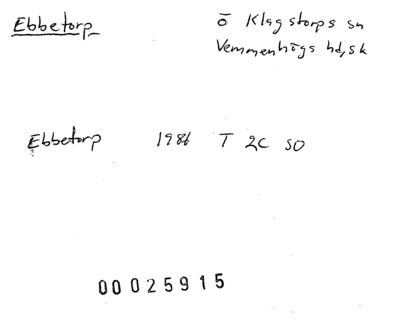 Ebbetorp
ö Klagstorps sn
Vemmenhögs hd, sk
Ebbetorp 1986 T 2C SO
00025915